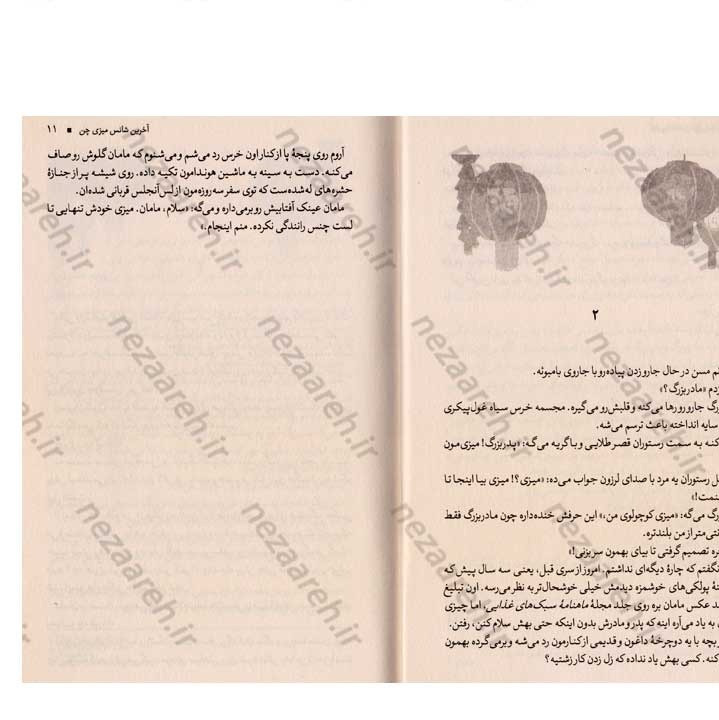 ۲
مسن در حال جارو زدن پیاده‌رو با جاروی بامبوئه.
«مادربزرگ؟»
جارو رو رها می‌کنه و قلبش رو می‌گیره. مجسمه خرس سیاه غول‌پیکری
سایه انداخته باعث ترسم می‌شه.
به سمت رستوران قصر طلایی و با گریه می‌گه: «پدربزرگ! میزی مون
رستوران یه مرد با صدای لرزون جواب می‌ده: «میزی؟! میزی بیا اینجا تا
می‌گه: «میزی کوچولوی من.» این حرفش خنده‌داره چون مادربزرگ فقط
از من بلندتره.
تصمیم گرفتی تا بیای بهمون سر بزنی!»
که چارهٔ دیگه‌ای نداشتم. امروز از سری قبل، یعنی سه سال پیش که
پولکی‌های خوشمزه دیدمش خیلی خوشحال‌تر به نظر می‌رسه. اون تبلیغ
عکس مامان بره روی جلد مجلهٔ ماهنامهٔ سبک‌های غذایی، اما چیزی
به یاد می‌آره اینه که پدر و مادرش بدون اینکه حتی بهش سلام کنن، رفتن.
با یه دوچرخهٔ داغون و قدیمی از کنارمون رد می‌شه و برمی‌گرده بهمون
کسی بهش یاد نداده که زل زدن کار زشتیه؟
آخرین شانس میزی چن ▪ ۱۱
آروم روی پنجهٔ پا از کنار اون خرس رد می‌شم و می‌شنوم که مامان گلوش رو صاف
می‌کنه. دست به سینه به ماشین هوندامون تکیه داده. روی شیشه پر از جنازهٔ
حشره‌های له‌شده‌ست که توی سفر سه روزه‌مون از لس آنجلس قربانی شده‌ان.
مامان عینک آفتابیش رو برمی‌داره و می‌گه: «سلام، مامان. میزی خودش تنهایی تا
لست چنس رانندگی نکرده. منم اینجام.»
nezaareh.ir
nezaareh.ir
nezaareh.ir
nezaareh.ir
nezaareh.ir
nezaareh.ir
nezaareh.ir
nezaareh.ir
nezaareh.ir